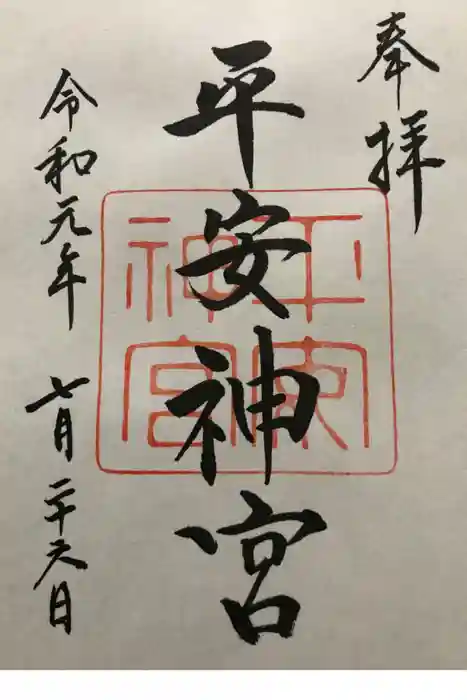 奉拝
平安神宮
平安神宮
令和元年 七月二十六日